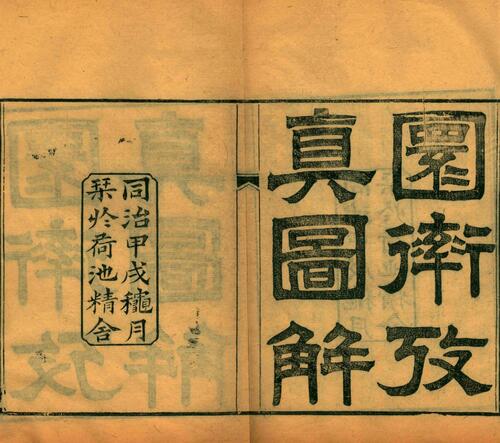 圜𧗿攷
真圖解
同治甲戌龝月
栞於荷池精舍